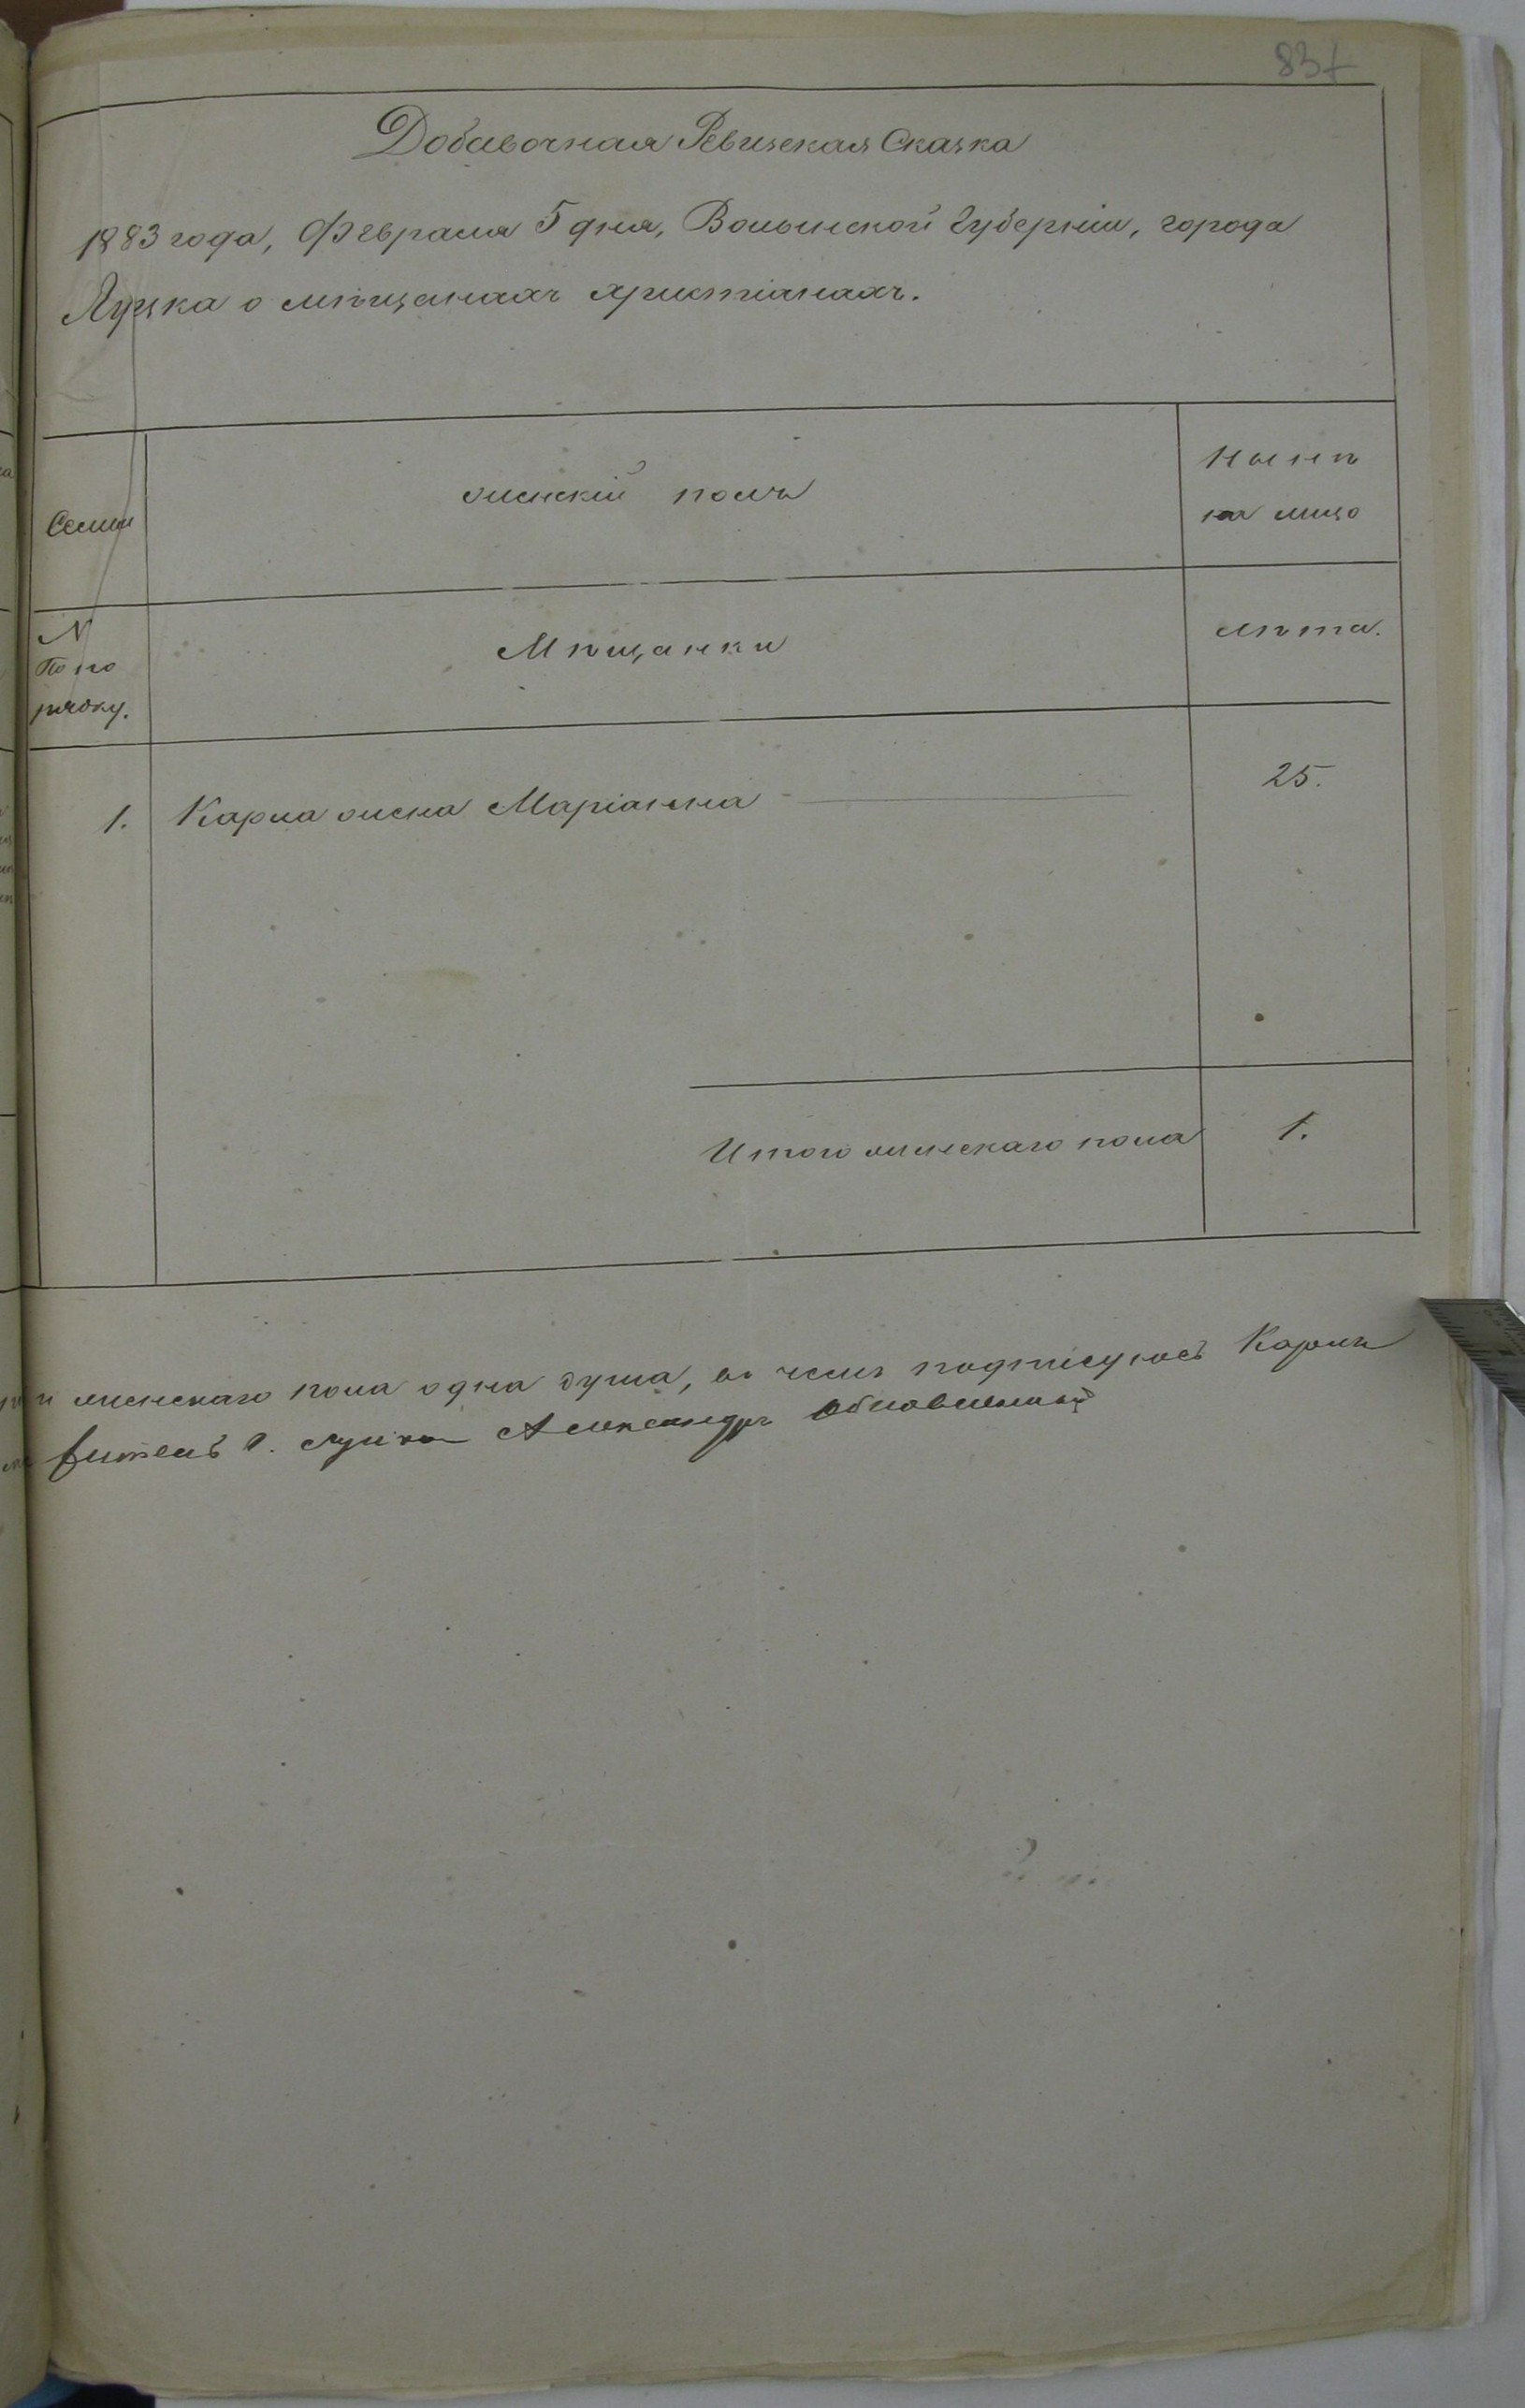 837
Добавочная Ревизская Сказка
1883 года, Февраля 5 дня, Волынской Губерніи, города
Луцка о мѣщанахъ христіанахъ.
Семьи
женскій полъ
Нынѣ
на лицо
N
По по
рядку.
Мѣщанки
лѣта.
1.
Карла жена Маріанна
25.
Итого женскаго пола
1.
и женскаго пола одна душа, въ чемъ подписуюсь Карлъ
г. Луцка Александръ